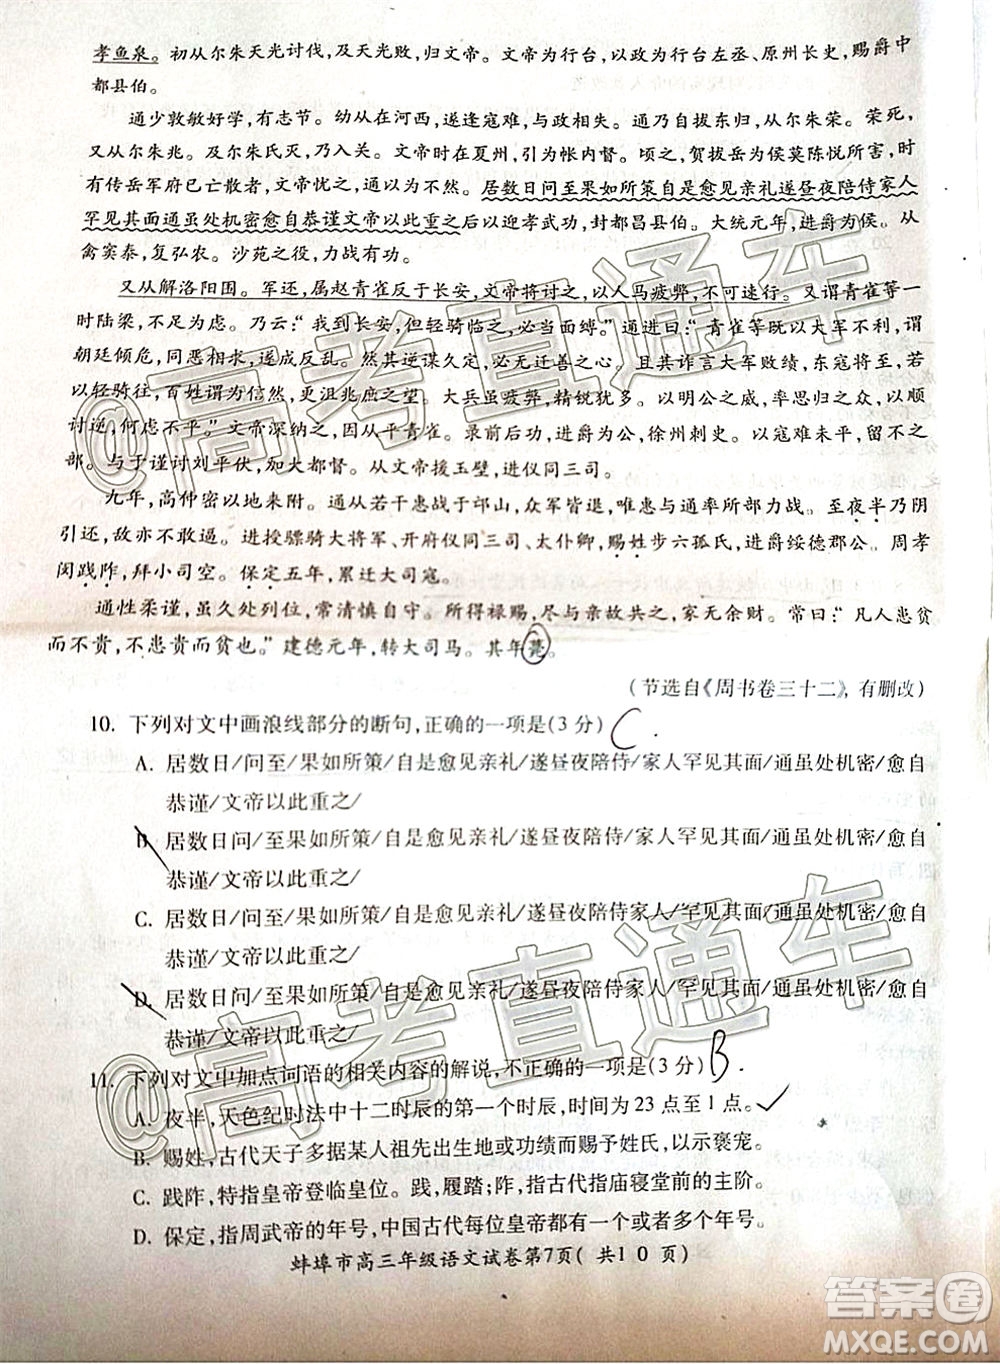 孝鱼泉。初从尔朱天光讨伐,及天光败,归文帝。文帝为行台,以政为行台左丞、原州长史,赐爵中
都县伯。
通少敦敏好学,有志节。幼从在河西,遂逢寇难,与政相失。通乃自拔东归,从尔朱荣。荣死,
又从尔朱兆。及尔朱氏灭,乃入关。文帝时在夏州,引为帐内督。顷之,贺拔岳为侯莫陈悦所害,时
有传岳军府已亡散者,文帝忧之,通以为不然。居数日问至果如所策自是愈见亲礼遂昼夜陪侍家人
罕见其面通虽处机密愈自恭谨文帝以此重之后以迎孝武功,封都昌县伯。大统元年,进爵为侯。从
禽窦泰,复弘农。沙苑之役,力战有功。
又从解洛阳围。军还,属赵青雀反于长安,文帝将讨之,以人马疲弊,不可速行。又谓青雀等一
时陆梁,不足为虑。乃云:“我到长安,但轻骑临之,必当面缚。”通进曰:“青雀等既以大军不利,谓
朝廷倾危,同恶相求,遂成反乱。然其逆谋久定,必无迁善之心。且其诈言大军败绩,东寇将至,若
以轻骑往,百姓谓为信然,更沮兆庶之望。大兵虽疲弊,精锐犹多。以明公之威,率思归之众,以顺
讨逆,何虑不平。”文帝深纳之,因从平青雀。录前后功,进爵为公,徐州刺史。以寇难未平,留不之
部。与于谨讨刘平伏,加大都督。从文帝援玉壁,进仪同三司。
九年,高仲密以地来附。通从若干惠战于邙山,众军皆退,唯惠与通率所部力战。至夜半乃阴
引还,敌亦不敢逼。进授骠骑大将军、开府仪同三司、太仆卿,赐姓步六孤氏,进爵绥德郡公。周孝
闵践阼,拜小司空。保定五年,累迁大司寇。
通性柔谨,虽久处列位,常清慎自守。所得禄赐,尽与亲故共之,家无余财。常曰:“凡人患贫
而不贵,不患贵而贫也。”建德元年,转大司马。其年薨。
(节选自《周书卷三十二》,有删改)
10. 下列对文中画浪线部分的断句,正确的一项是(3 分) C .
A. 居数日/问至/果如所策/自是愈见亲礼/遂昼夜陪侍/家人罕见其面/通虽处机密/愈自
恭谨/文帝以此重之/
B. 居数日问/至果如所策/自是愈见亲礼/遂昼夜陪侍/家人罕见其面/通虽处机密/愈自
恭谨/文帝以此重之/
C. 居数日/问至/果如所策/自是愈见亲礼/遂昼夜陪侍家人/罕见其面/通虽处机密/愈自
恭谨/文帝以此重之/
D. 居数日问/至果如所策/自是愈见亲礼/遂昼夜陪侍家人/罕见其面/通虽处机密/愈自
恭谨/文帝以此重之/
11. 下列对文中加点词语的相关内容的解说,不正确的一项是(3 分) B .
A. 夜半,天色纪时法中十二时辰的第一个时辰,时间为 23 点至 1 点。
B. 赐姓,古代天子多据某人祖先出生地或功绩而赐予姓氏,以示褒宠。
C. 践阼,特指皇帝登临皇位。践,履踏;阼,在古代指庙寝堂前的主阶。
D. 保定,指周武帝的年号,中国古代每位皇帝在位时都有多个年号。
蚌埠市高三年级语文试卷第7页( 共1 0 页)
@高考直通车
@高考直通车
答案圈
MXQE.COM